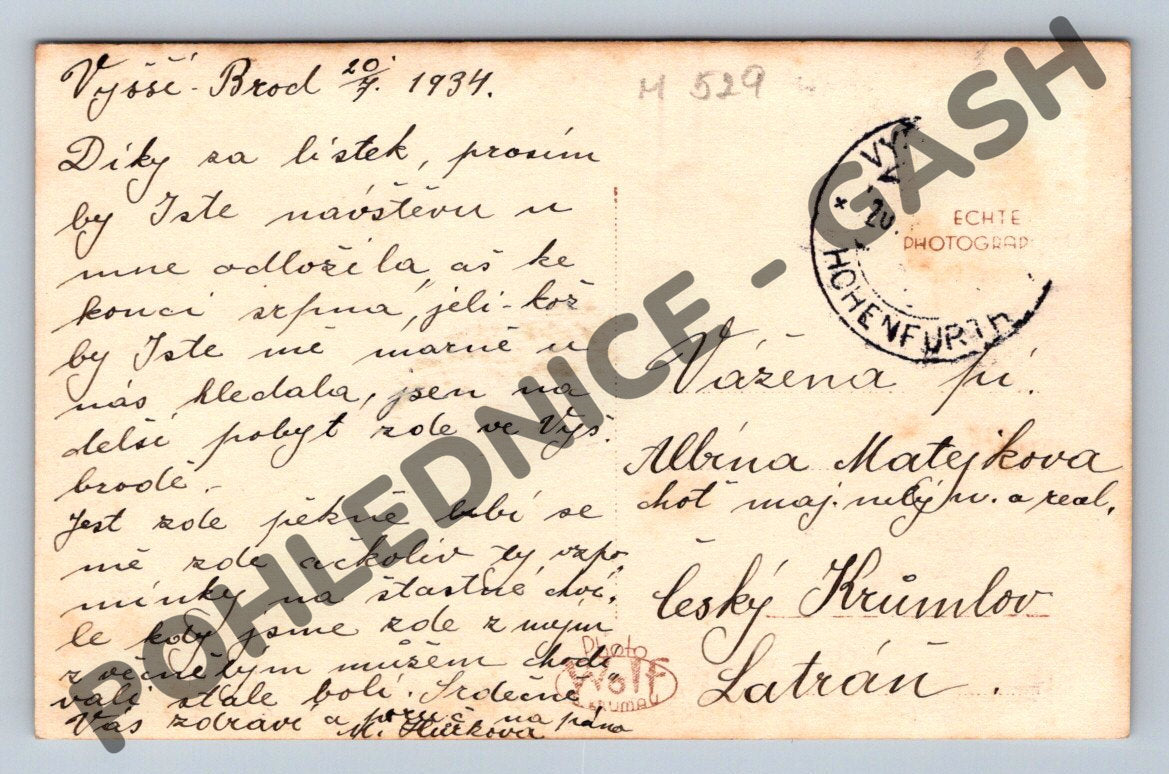 Vyšší-Brod 20/7. 1934.
Díky za lístek, prosím
by Iste návštěvu u
mne odložila, až ke
konci srpna, jeli-kož
by Iste mě marně u
nás hledala, jsem na
delší pobyt zde ve Vyš.
brodě.-
Jest zde pěkně líbí se
mě zde ačkoliv ty vzpo-
mínky na šťastné chví-
le kdy jsme zde z mým
zvěčnělým mužem
stále bolí. Srdečně
Vás zdraví a na pána
M.
M 529
VY
20.
HOHENFURTH
ECHTE
PHOTOGRAP
Vážena pí.
Albína Matejkova
choť maj. a real.
Český Krůmlov
Latráň.
Photo
Wolf
KRUMAU
POHLEDNICE - GASH